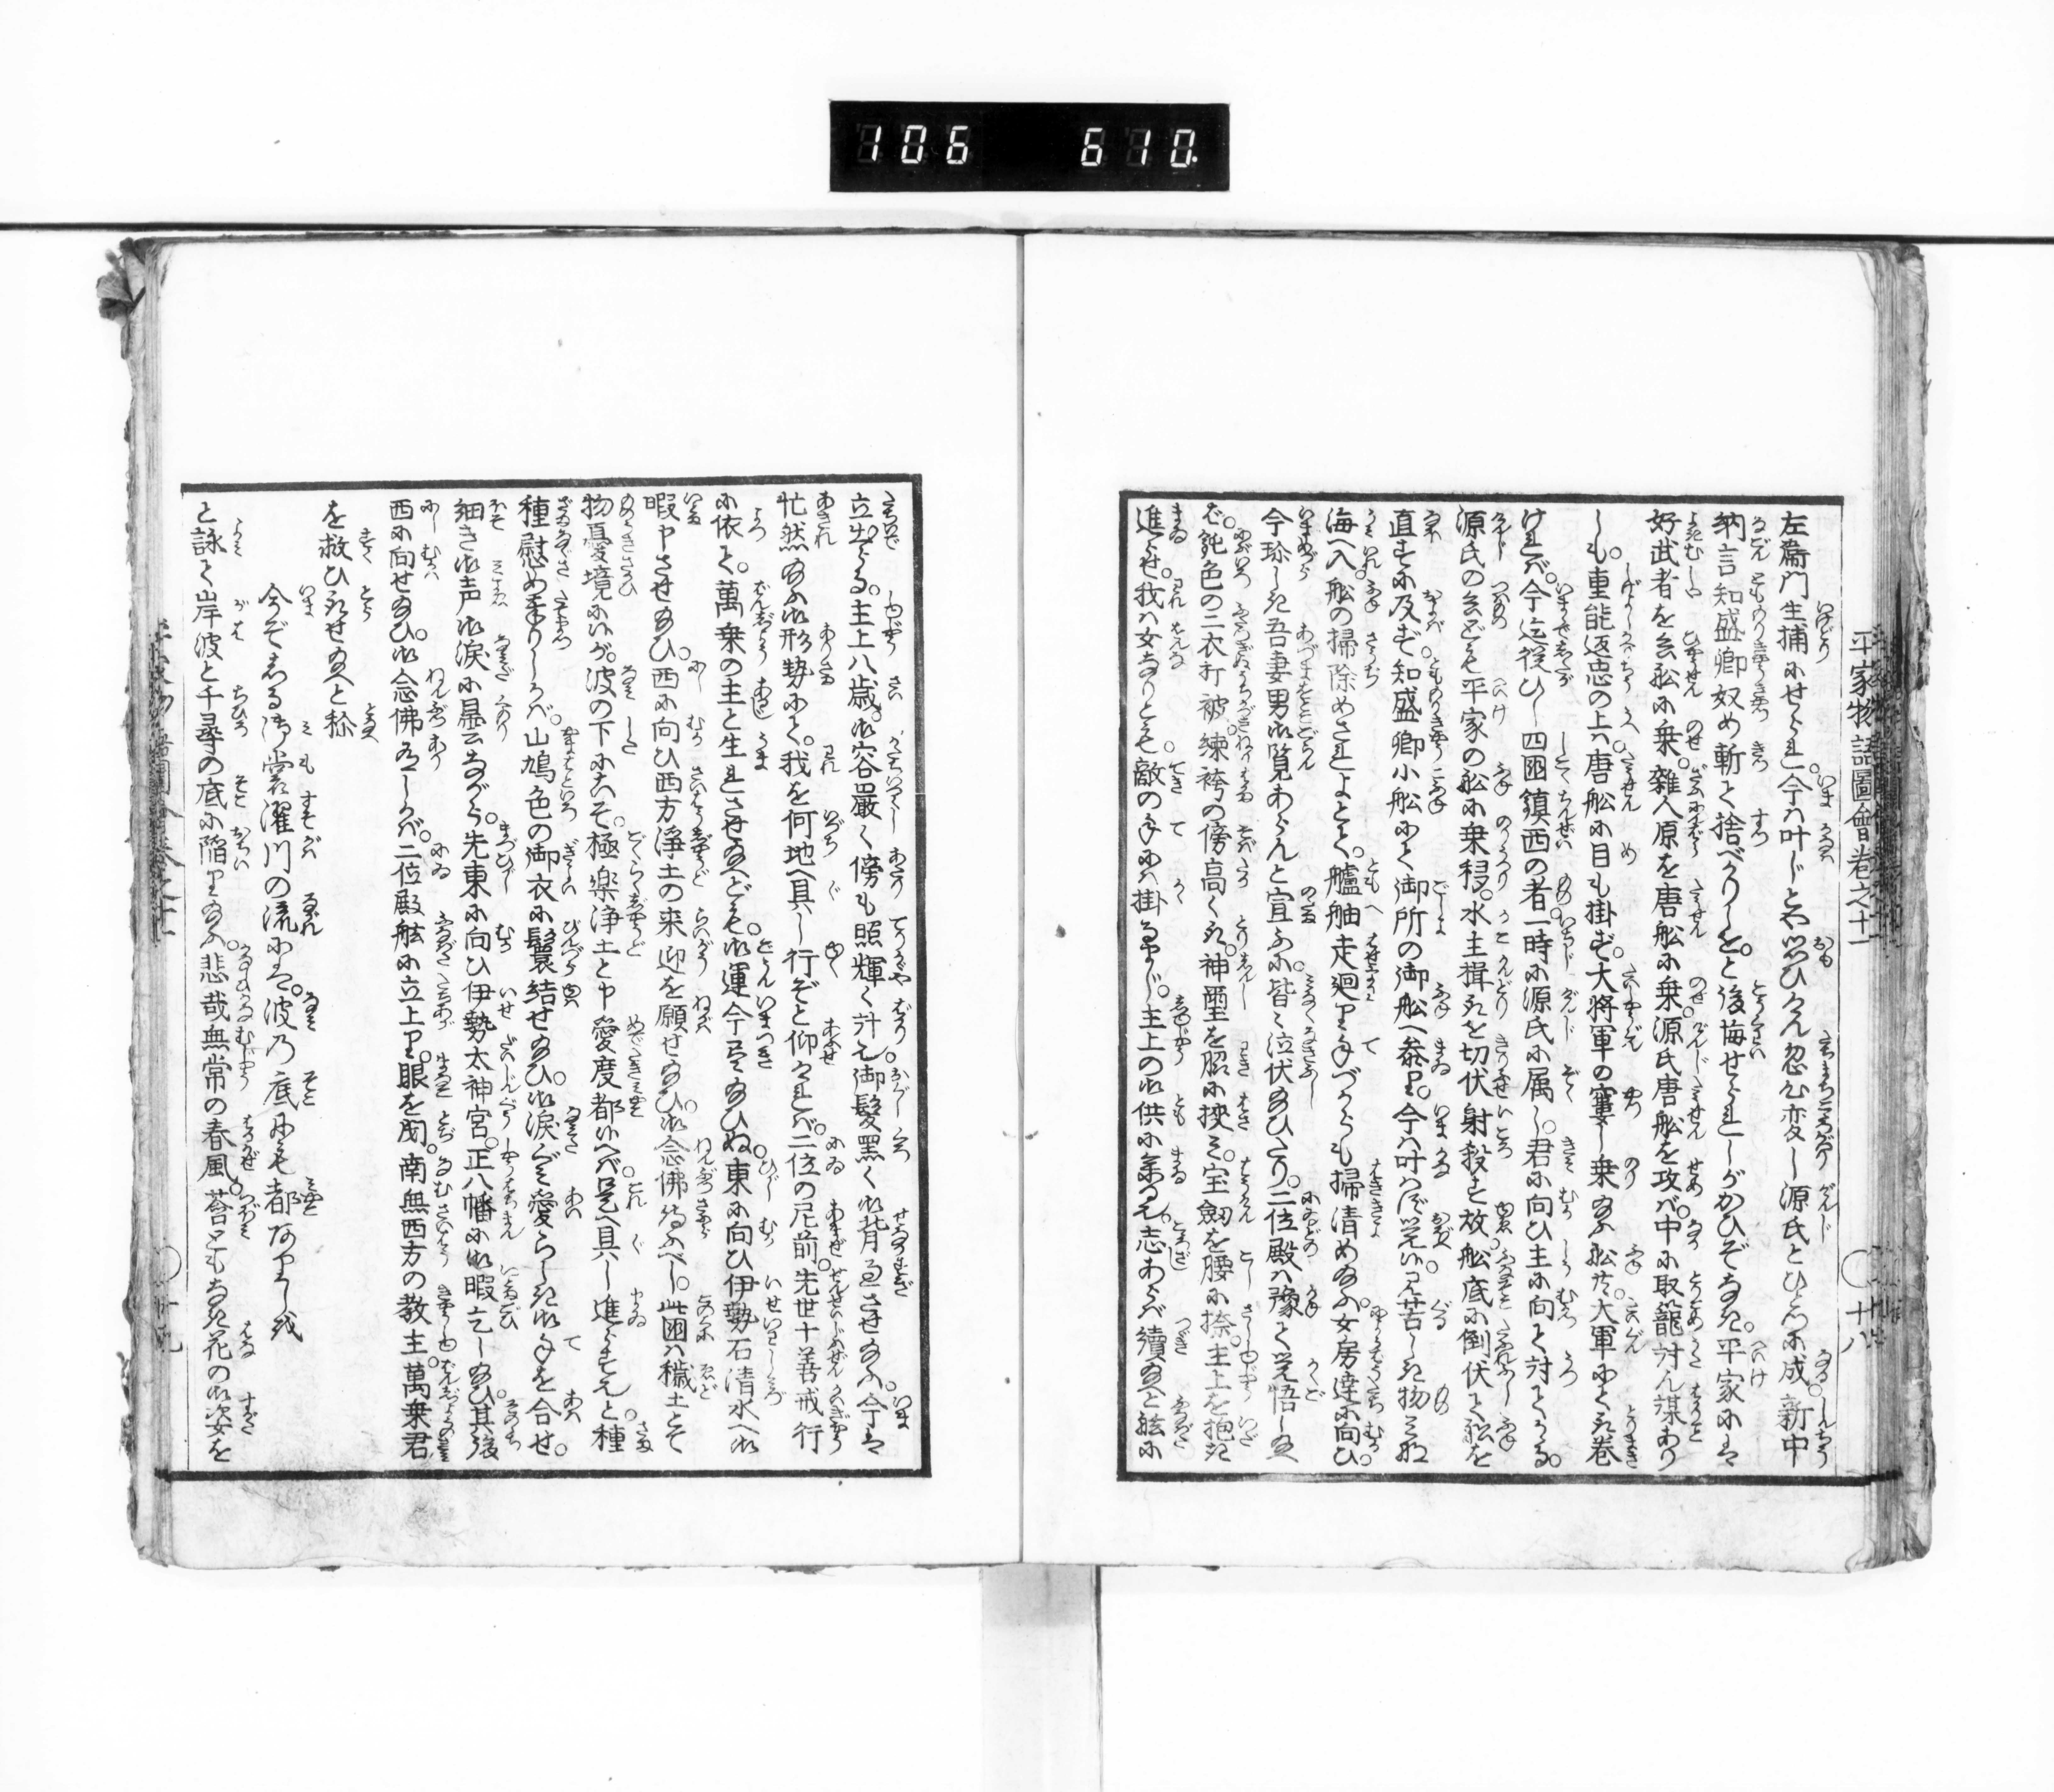 106 610
平家物語圖會巻之十一
十八
左衞門生捕にせられ。今ハ叶じとや思ひけん忽心変し源氏とひとつに成。新中
納言知盛卿奴め斬て捨べかりしを。と後悔せられしがかひぞなき。平家にハ
好武者を兵舩に乗。雜人原を唐舩に乗。源氏唐舩を攻バ。中に取籠討ん謀あり
しも。重能返忠の上ハ唐舩に目も掛ず。大将軍の窶し乗給ふ舩共。大軍にて取巻
ければ。今迄従ひし四国鎮西の者一時に源氏に属し。君に向ひ主に向て討てかゝる。
源氏の兵ども平家の舩に乗移。水主揖取を切伏射殺せバ。舩底に倒伏て舩を
直すに及ず。知盛卿小舩にて御所の御舩へ参り。今ハ叶ハず覚ル。見苦しき物ミな
海へ入。舩の掃除めされよとて。艫舳走廻り手づからも掃清め給ふ。女房達に向ひ。
今珍しき吾妻男御覧あらんと宣ふに。皆々泣伏給ひけり。二位殿ハ豫て覚悟し給へ
ば。鈍色の二衣打被。練袴の傍高く取。神璽を脇に挾ミ。宝劔を腰に捺。主上を抱き
進らせ。我ハ女なりとも。敵の手にハ掛るまじ。主上の御供に參るぞ。志あらバ續給へと舷に
立出らる。主上八歳。御容嚴く傍も照輝く計也。御髮黒く御背過させ給ふ。今ハ
忙然給ふ御形勢にて。我を何地へ具し行ぞと仰ければ。二位の尼前。先世十善戒行
に依て。萬乗の主と生れさせ給へども。御運今尽給ひぬ。東に向ひ伊勢石清水へ御
暇申させ給ひ。西に向ひ西方浄土の来迎を願せ給ひ。御念佛候ふべし。此国ハ穢土とて
物憂境にいが。波の下にこそ。極楽浄土と申愛度都いへバ。是へ具し進らすると。種
種慰め參りしかバ。山鳩色の御衣に鬟結せ給ひ。御涙ぐミ愛らしき御手を合せ。
細き御声御涙に昏ながら。先東に向ひ伊勢太神宮。正八幡に御暇乞し給ひ。其後
西に向せ給ひ。御念佛有しかバ。二位殿舷に立上り。眼を閉。南無西方の教主。萬乗君
を救ひ取せ給へと祢
今ぞしる御裳濯川の流にハ。波乃底にも都ありし哉
と詠て岸波と千尋の底に陥り給ふ。悲哉無常の春風。莟ともなき花の御姿を